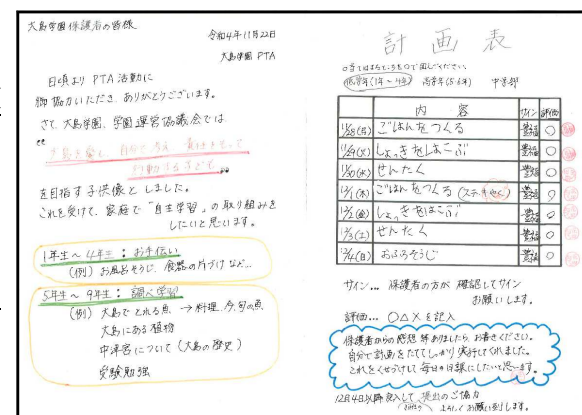 大島学園保護者の皆様
令和4年11月22日
大島学園 PTA
日頃より PTA 活動に
御協力いただき、ありがとうございます。
さて、大島学園、学園運営協議会では、
大島を愛し、自分で考え、責任をもって
行動する子ども
を目指す子供像としました。
これを受けて、家庭で「自主学習」の取り組みを
したいと思います。
1年生〜4年生：お手伝い
（例）お風呂そうじ、食器の片づけなど…
5年生〜9年生：調べ学習
（例）大島でとれる魚 → 料理、今旬の魚
大島にある植物
中津宮について（大島の歴史）
受験勉強
計画表
低学年（1年〜4年） 高学年（5.6年） 中学部
内容 サイン 評価
11/28(月) ごはんをつくる ○
11/29(火) しょっきをはこぶ ○
11/30(水) せんたく ○
12/1(木) ごはんをつくる ○
12/2(金) しょっきをはこぶ ○
12/3(土) せんたく ○
12/4(日) おふろそうじ ○
サイン… 保護者の方が確認してサイン
お願いします。
評価… ○△×を記入
保護者からの感想等ありましたら、お書きください。
自分で計画をたててしっかり実行してくれました。
これをくせづけて毎日の日課にしたいと思います。
12月4日以降 記入して、提出のご協力
よろしくお願い致します。